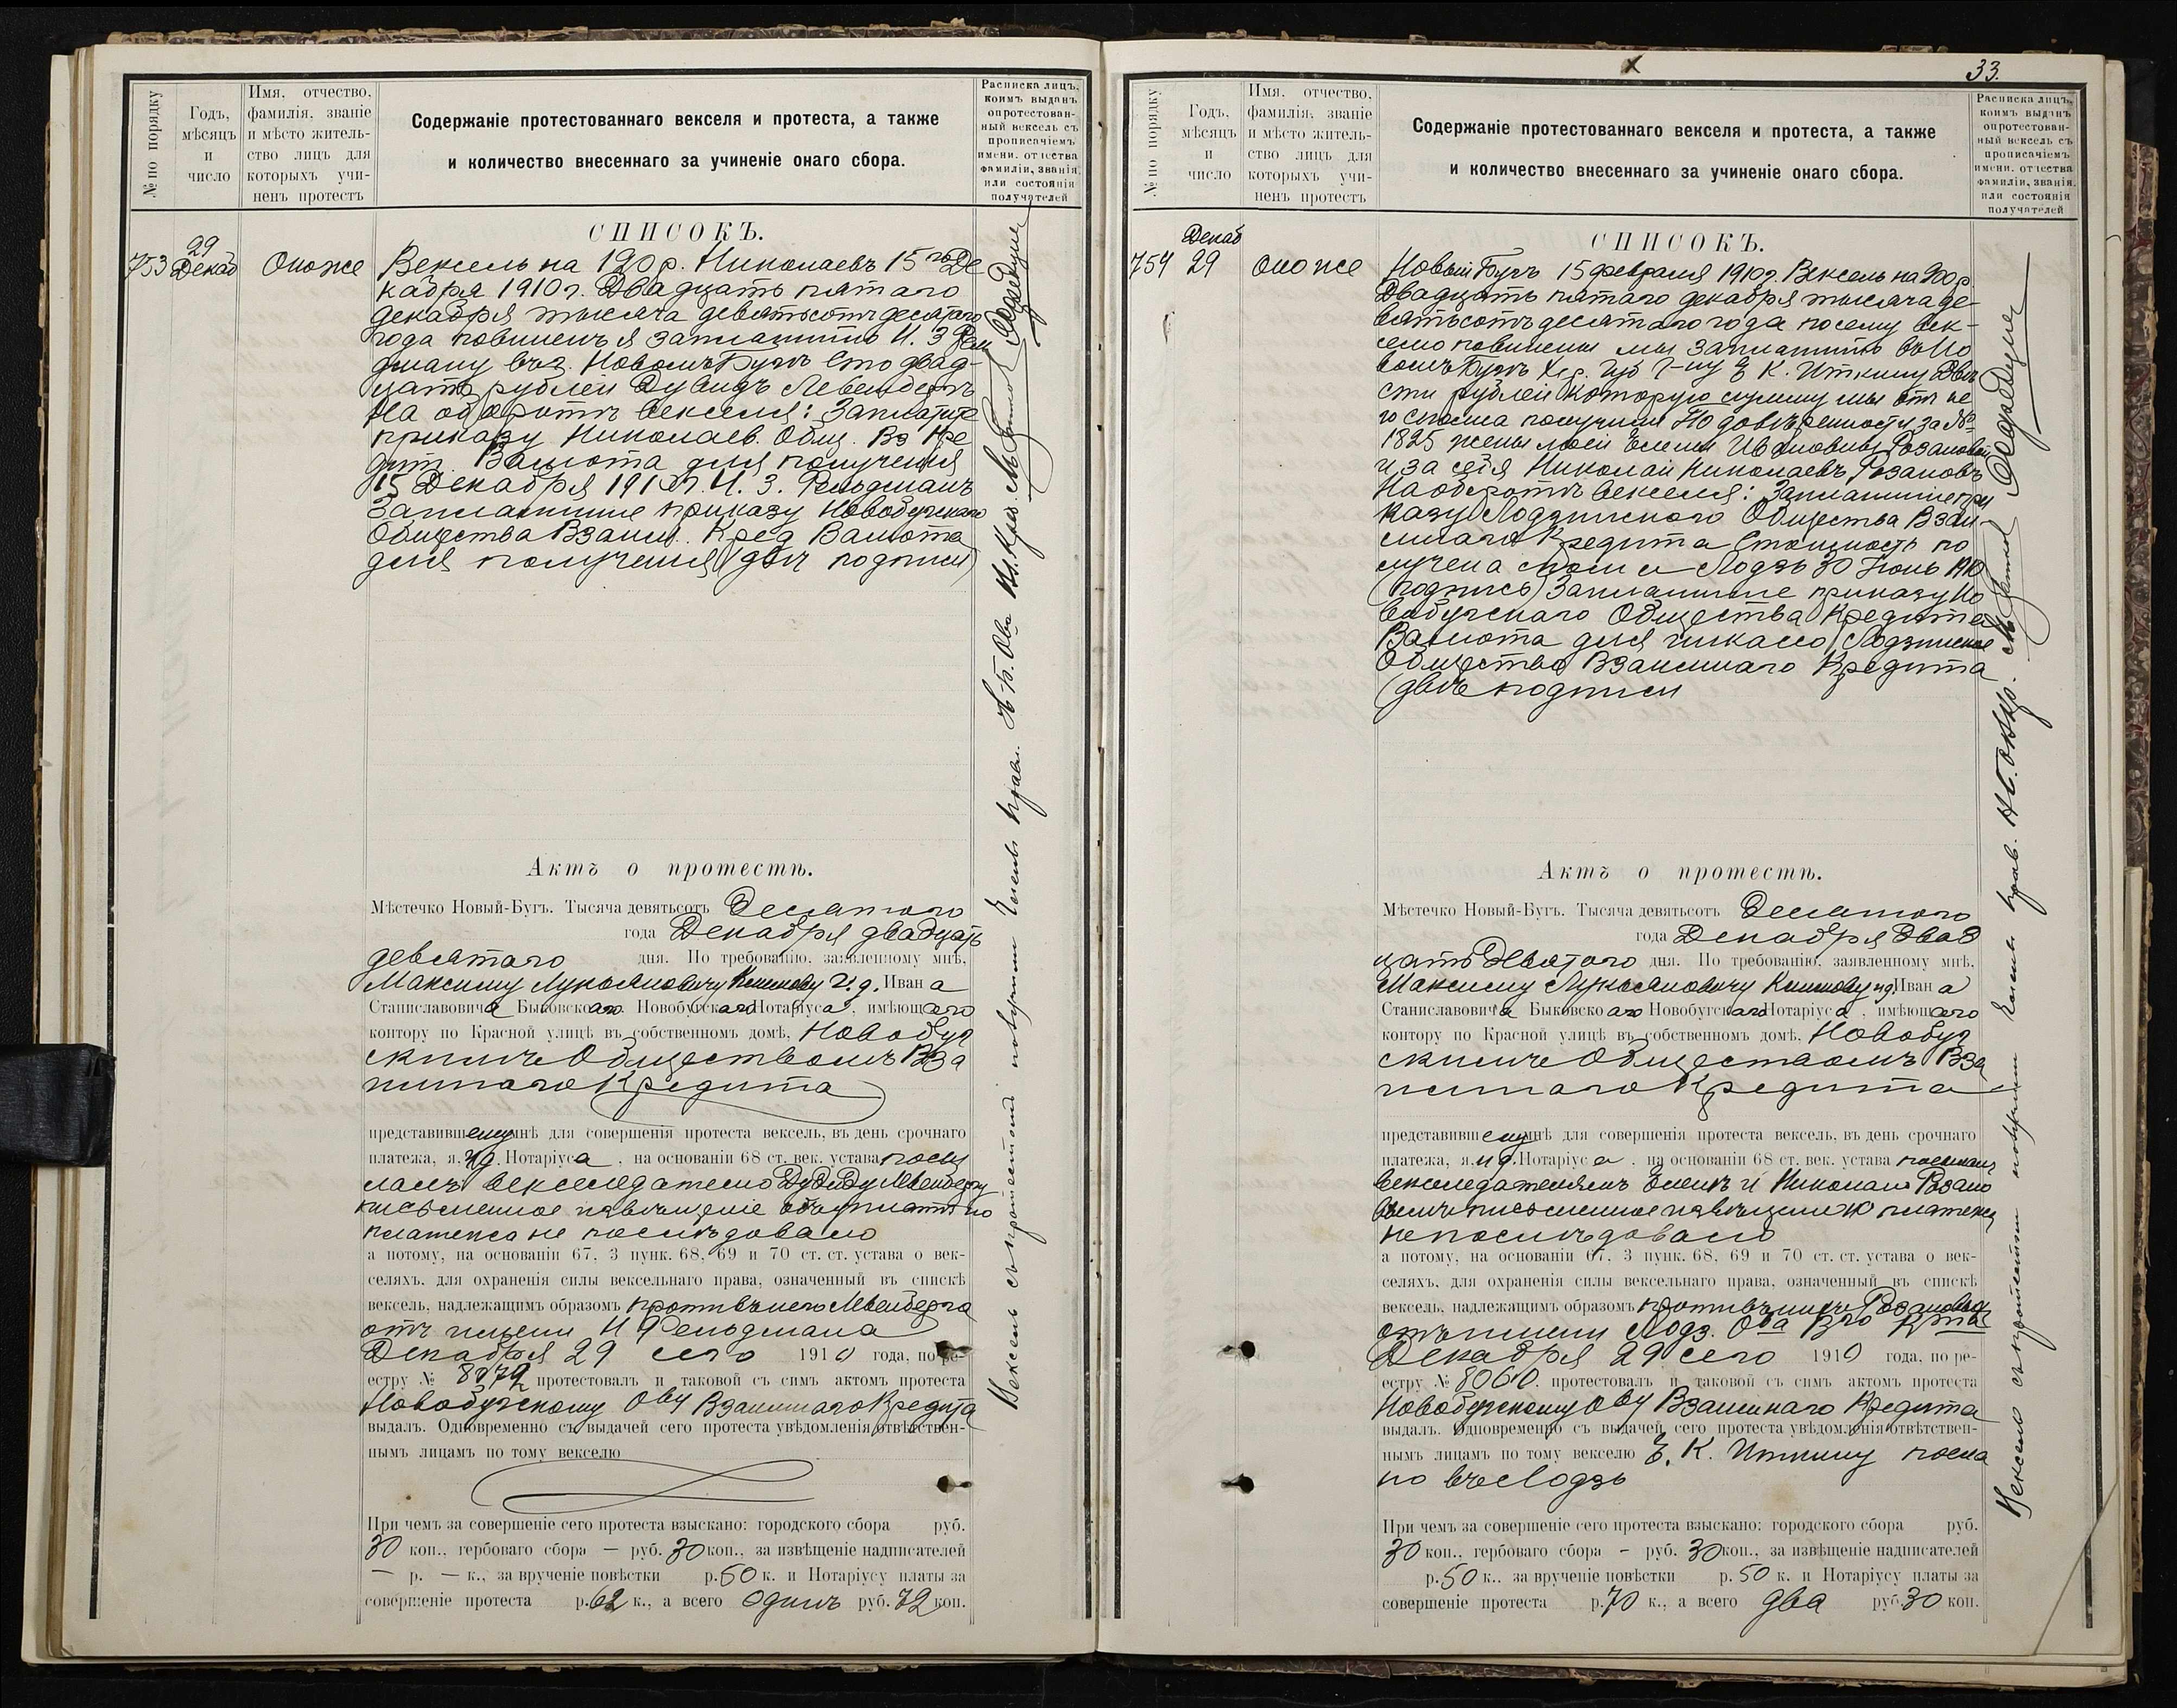 № по порядку
Годъ,
мѣсяцъ
и
число
Имя, отчество,
фамилія, званіе
и мѣсто житель-
ство лицъ для
которыхъ учи-
ненъ протестъ
Содержаніе протестованнаго векселя и протеста, а также
и количество внесеннаго за учиненіе онаго сбора.
Расписка лицъ,
коимъ выданъ
опротестован-
ный вексель съ
прописаніемъ
имени, отчества
фамиліи, званія,
или состоянія
получателей
СПИСОКЪ.
753 29 Декаб Оноже
Вексель на 120 р. Николаевъ 15 го Де
кабря 1910 г. Двадцать пятаго
декабря тысяча девятьсотъ десятаго
года повиненъ я заплатить И. З. Фель
дману въ г. Новомъ Бугѣ Сто двад-
цать рублей Дувидъ Левенбергъ
На оборотѣ векселя: Заплатите
приказу Николаев. Общ. Вз Кре
дит. Валюта для полученія
15 Декабря 1910 г. И. З. Фельдманъ
Заплатите приказу Новобугскаго
Общества Взаим. Кред Валюта
для полученія (двѣ подписи)
Актъ о протестѣ.
Мѣстечко Новый-Бугъ. Тысяча девятьсотъ Десятаго
года Декабря двадцать
девятаго дня. По требованію, заявленному мнѣ,
Максиму Лукьяновичу Климову И. д. Ивана
Станиславовича Быковскаго Новобугскаго Нотаріуса, имѣющаго
контору по Красной улицѣ въ собственномъ домѣ, Новобуг
скимъ Обществомъ Вза
имнаго Кредита
представившему мнѣ для совершенія протеста вексель, въ день срочнаго
платежа, я, И д. Нотаріуса, на основаніи 68 ст. век. устава посы
лалъ векселедателю Дувиду Левенбергу
письменное извѣщеніе о платежѣ но
платежа не послѣдовало
а потому, на основаніи 67, 3 пунк. 68, 69 и 70 ст. ст. устава о век-
селяхъ, для охраненія силы вексельнаго права, означенный въ спискѣ
вексель, надлежащимъ образомъ противъ него Левенберга
отъ имени И Фельдмана
Декабря 29 сего 1910 года, по ре-
естру № протестовалъ и таковой съ симъ актомъ протеста
Новобугскому Ову Взаимнаго Кредита
выдалъ. Одновременно съ выдачей сего протеста увѣдомленія отвѣтствен-
нымъ лицамъ по тому векселю
При чемъ за совершеніе сего протеста взыскано: городского сбора руб.
30 коп., гербоваго сбора — руб. 30 коп., за извѣщеніе надписателей
— р. — к., за врученіе повѣстки р. 50 к. и Нотаріусу платы за
совершеніе протеста р. 62 к., а всего Одинъ руб. 72 коп.
Вексель съ протестомъ получилъ Членъ Правл.
33.
№ по порядку
Годъ,
мѣсяцъ
и
число
Имя, отчество,
фамилія, званіе
и мѣсто житель-
ство лицъ для
которыхъ учи-
ненъ протестъ
Содержаніе протестованнаго векселя и протеста, а также
и количество внесеннаго за учиненіе онаго сбора.
Расписка лицъ,
коимъ выданъ
опротестован-
ный вексель съ
прописаніемъ
имени, отчества
фамиліи, званія,
или состоянія
получателей
СПИСОКЪ.
754 Декаб 29 Оноже
Новый Бугъ 15 февраля 1910 г. Вексель на 200 р
Двадцать пятаго декабря тысяча де-
вятьсотъ десятаго года по сему век-
селю повинны мы заплатить въ Но
вомъ Бугѣ Хер. Губ Г-ну Е К. Иткину Двѣ
сти рублей которую сумму мы отъ не
го сполна получили По довѣренности за №
1825 жены моей Елены Ивановны Розановой
и за себя Николай Николаевъ Розановъ
На оборотѣ векселя: Заплатите при
казу Лодзинскаго Общества Взаи-
мнаго Кредита Стоимость по
лучена Лодзь 30 Іюнь 1910
(подпись) Заплатите приказу Но
вобугскаго Общества Кредита
Валюта для инкассо (Лодзинское
Общество Взаимнаго Кредита
(двѣ подписи
Актъ о протестѣ.
Мѣстечко Новый-Бугъ. Тысяча девятьсотъ Десятаго
года Декабря двад
цать Девятаго дня. По требованію, заявленному мнѣ,
Максиму Лукьяновичу Климову ид. Ивана
Станиславовича Быковскаго Новобугскаго Нотаріуса, имѣющаго
контору по Красной улицѣ въ собственномъ домѣ, Новобуг
скимъ Обществомъ Вза
имнаго Кредита
представившему мнѣ для совершенія протеста вексель, въ день срочнаго
платежа, я, И д. Нотаріуса, на основаніи 68 ст. век. устава посылалъ
векселедателямъ Еленѣ и Николаю Розано
вымъ письменное извѣщеніе но платежа
не послѣдовало
а потому, на основаніи 67, 3 пунк. 68, 69 и 70 ст. ст. устава о век-
селяхъ, для охраненія силы вексельнаго права, означенный въ спискѣ
вексель, надлежащимъ образомъ противъ нихъ Розановыхъ
отъ имени Лодз. Ова Вго Крта
Декабря 29 сего 1910 года, по ре-
естру № 8060. протестовалъ и таковой съ симъ актомъ протеста
Новобугскому Ову Взаимнаго Кредита
выдалъ. Одновременно съ выдачей сего протеста увѣдомленія отвѣтствен-
нымъ лицамъ по тому векселю Е. К. Иткину посла
но въ Лодзь
При чемъ за совершеніе сего протеста взыскано: городского сбора руб.
30 коп., гербоваго сбора - руб. 30 коп., за извѣщеніе надписателей
р. 50 к., за врученіе повѣстки р. 50 к. и Нотаріусу платы за
совершеніе протеста р. 70 к., а всего два руб. 30 коп.
Вексель съ протестомъ получилъ Членъ прав.